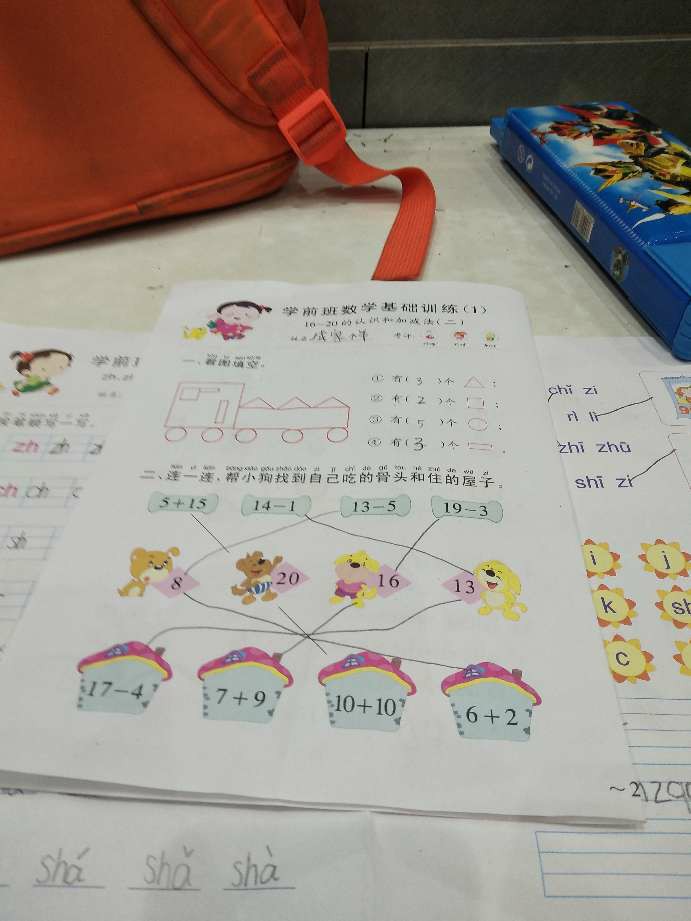 学前班数学基础训练(1)
16-20的认识和加减法(二)
一、看图填空。
① 有(3)个△;
② 有(2)个□;
③ 有(5)个○;
④ 有(3)个▭.
二、连一连,帮小狗找到自己吃的骨头和住的屋子。
5+15 14-1 13-5 19-3
8 20 16 13
17-4 7+9 10+10 6+2
学前
zh, zi
zh zh
ch ch
sh
chī zi
rì lì
zhī zhū
shī zi
i j
k sh
c
shá shǎ shà